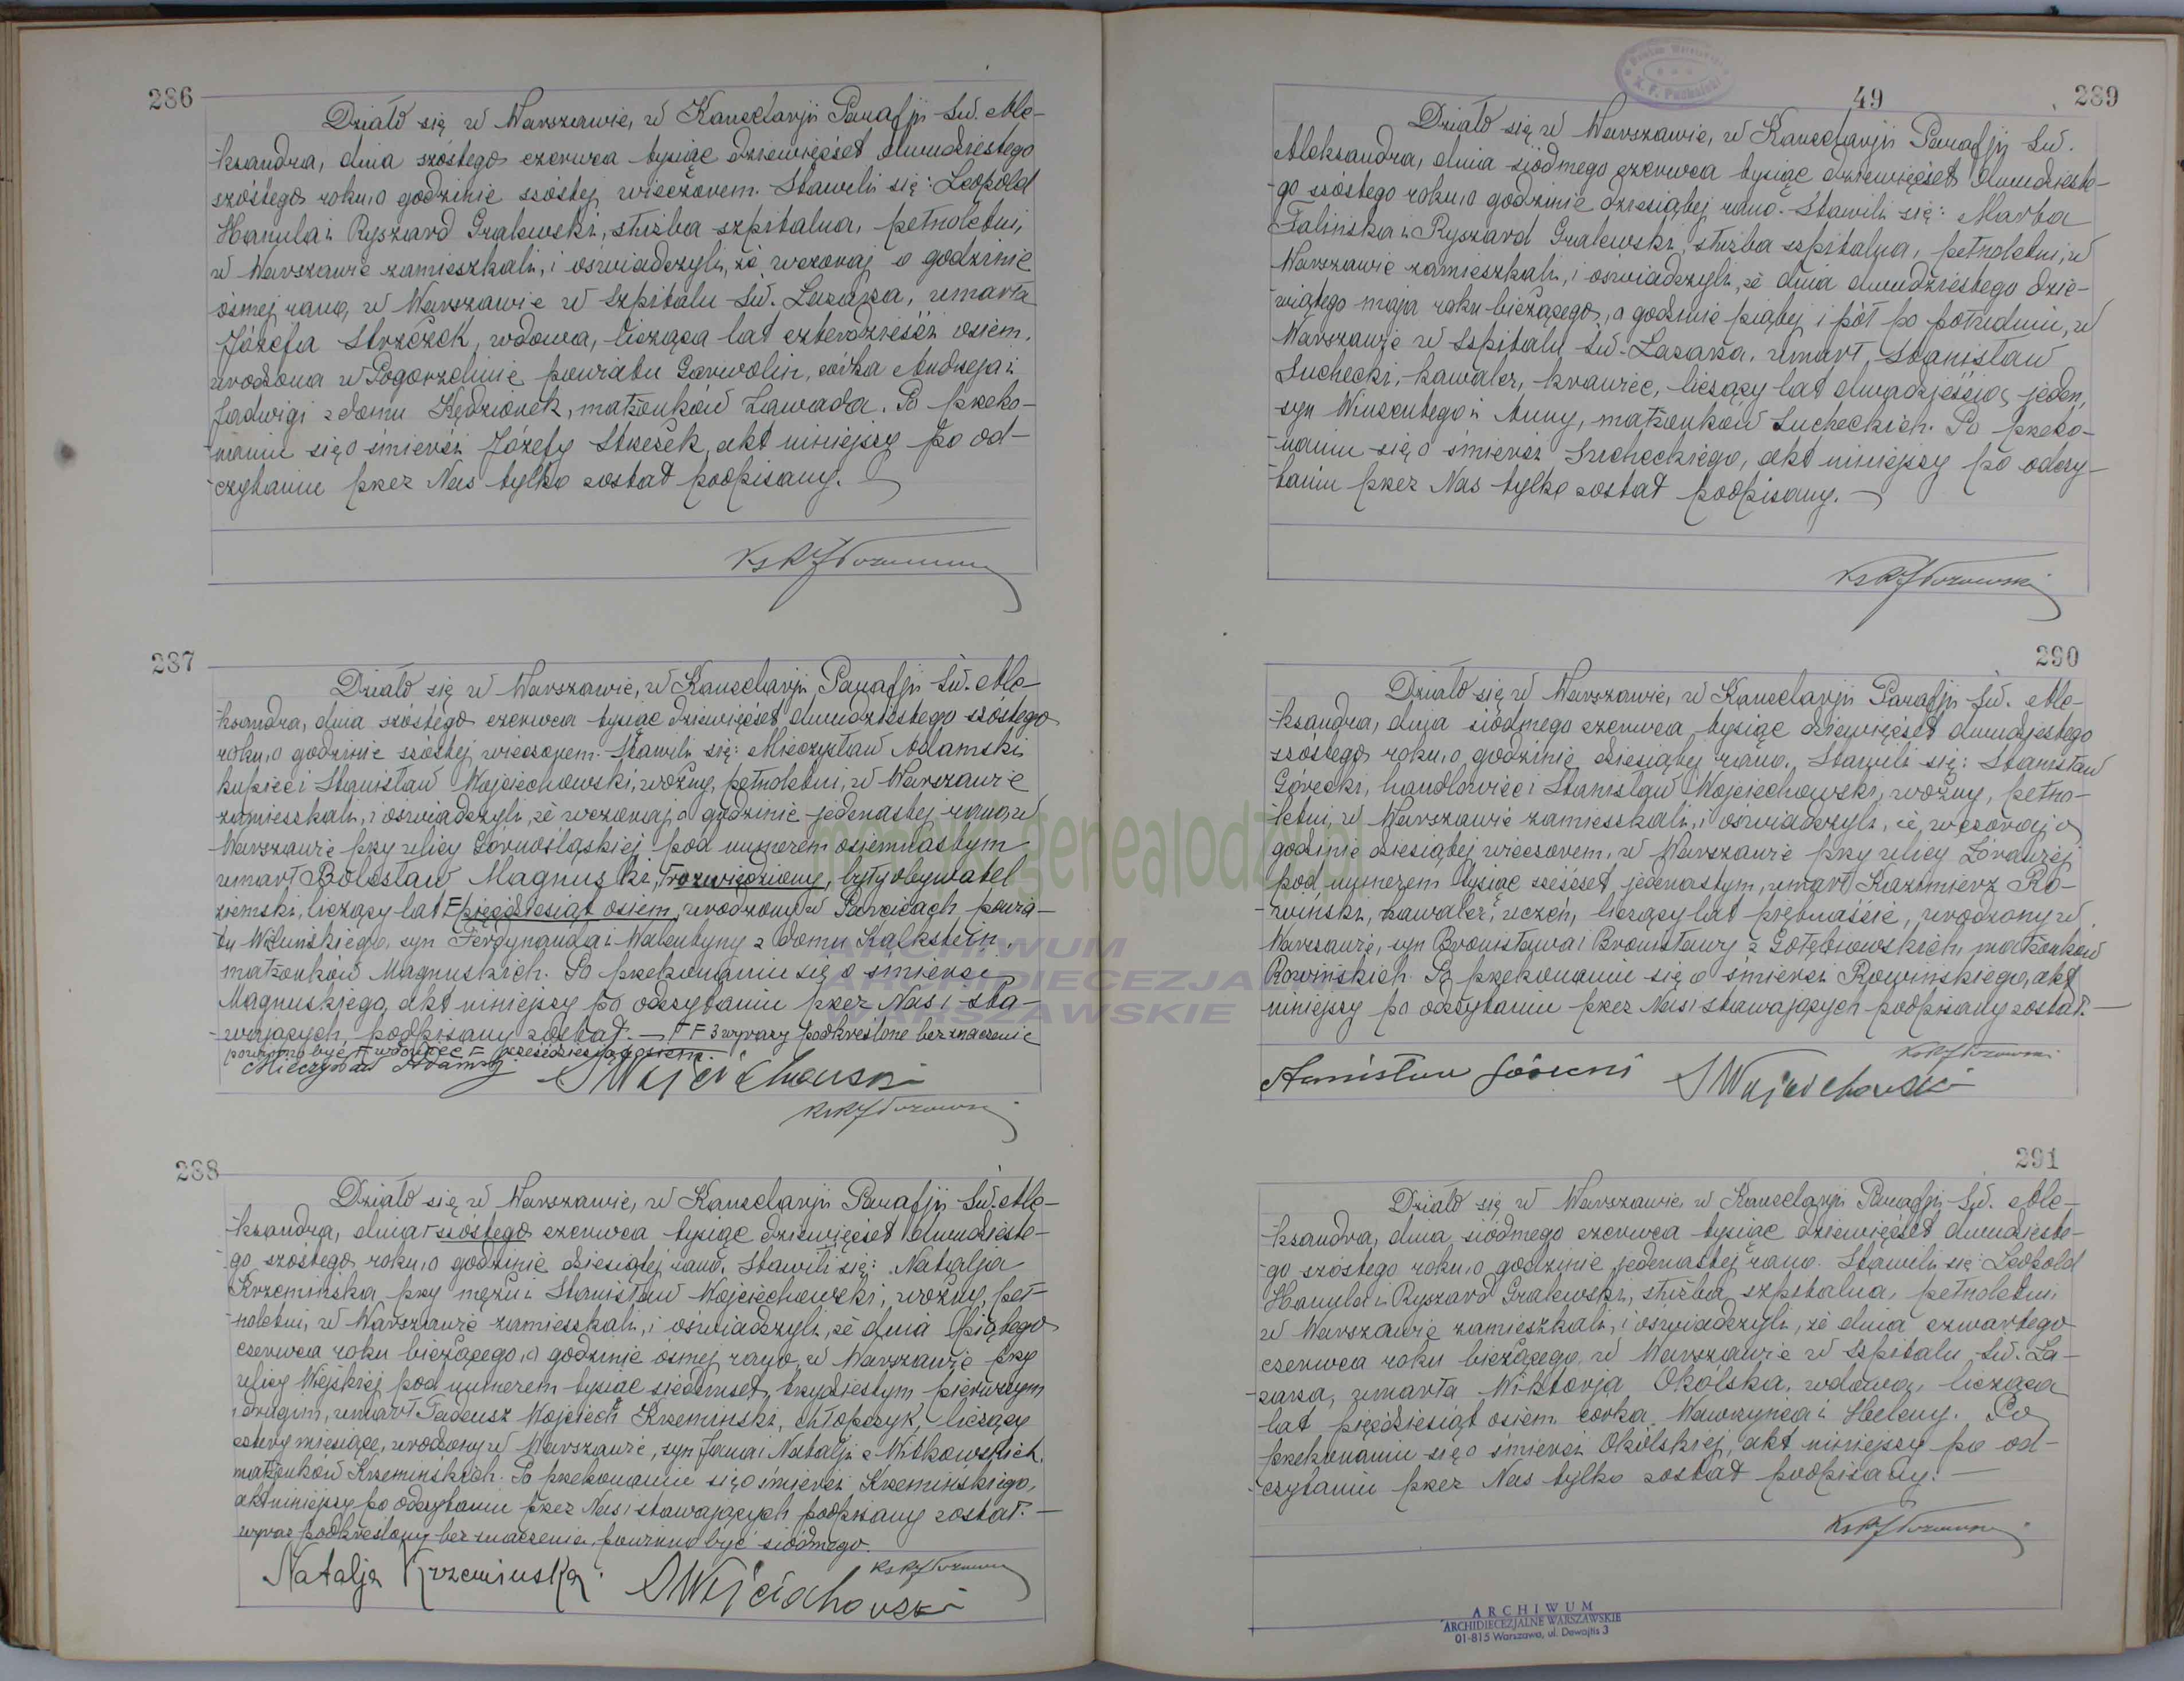 286
Działo się w Warszawie, w Kancelarji Parafji Św. Ale-
ksandra, dnia szóstego czerwca tysiąc dziewięćset dwudziestego
szóstego roku, o godzinie szóstej wieczorem. Stawili się: Leopold
Hamula i Ryszard Gralewski, służba szpitalna, pełnoletni,
w Warszawie zamieszkali, i oświadczyli, że wczoraj o godzinie
ósmej rano, w Warszawie w Szpitalu Św. Łazarza, umarła
Józefa Strzeżek, wdowa, licząca lat czterdzieści osiem,
urodzona w Pogorzelinie powiatu Garwolin, córka Andrzeja i
Jadwigi z domu Kędziorek, małżonków Zawada. Po przeko-
naniu się o śmierci Józefy Strzeżek, akt niniejszy po od-
czytaniu przez Nas tylko został podpisany.
287
Działo się w Warszawie, w Kancelarji Parafji Św. Ale-
ksandra, dnia szóstego czerwca tysiąc dziewięćset dwudziestego szóstego
roku, o godzinie szóstej wieczorem. Stawili się: Mieczysław Adamski
kupiec i Stanisław Wojciechowski, woźny, pełnoletni, w Warszawie
zamieszkali, i oświadczyli, że wczoraj, o godzinie jedenastej rano, w
Warszawie przy ulicy Górnośląskiej pod numerem osiemnastym
umarł Bolesław Magnuski, rozwiedziony, były obywatel
ziemski, liczący lat pięćdziesiąt osiem, urodzony w powia-
tu Wieluńskiego, syn Ferdynanda i Walentyny z domu Kalkstein,
małżonków Magnuskich. Po przekonaniu się o śmierci
Magnuskiego, akt niniejszy po odczytaniu przez Nas i sta-
wających, podpisany został. — 3 wyrazy podkreślone bez znaczenia
powinno być wdowiec sześćdziesiąt osiem.
Mieczysław Adamski SWojciechowski
288
Działo się w Warszawie, w Kancelarji Parafji Św. Ale-
ksandra, dnia szóstego czerwca tysiąc dziewięćset dwudzieste-
go szóstego roku, o godzinie dziesiątej rano. Stawili się: Natalja
Krzemińska przy mężu i Stanisław Wojciechowski, woźny, peł-
noletni, w Warszawie zamieszkali, i oświadczyli, że dnia piątego
czerwca roku bieżącego, o godzinie ósmej rano, w Warszawie przy
ulicy Wiejskiej pod numerem tysiąc siedemset trzydziestym pierwszym
i drugim, umarł Tadeusz Wojciech Krzemiński, chłopczyk, liczący
cztery miesiące, urodzony w Warszawie, syn Jana i Natalji z Witkowskich,
małżonków Krzemińskich. Po przekonaniu się o śmierci Krzemińskiego,
akt niniejszy po odczytaniu przez Nas i stawających podpisany został. —
wyraz podkreślony bez znaczenia, powinno być siódmego.
Natalja Krzemińska. SWojciechowski
49
289
Działo się w Warszawie, w Kancelarji Parafji Św.
Aleksandra, dnia siódmego czerwca tysiąc dziewięćset dwudzieste-
go szóstego roku, o godzinie dziesiątej rano. Stawili się: Marta
Falińska i Ryszard Gralewski, służba szpitalna, pełnoletni, w
Warszawie zamieszkali, i oświadczyli, że dnia dwudziestego dzie-
wiątego maja roku bieżącego, o godzinie piątej i pół po południu, w
Warszawie w Szpitalu Św. Łazarza, umarł, Stanisław
Suchecki, kawaler, krawiec, liczący lat dwadzieścia jeden,
syn Wincentego i Anny, małżonków Sucheckich. Po przeko-
naniu się o śmierci Sucheckiego, akt niniejszy po odczy-
taniu przez Nas tylko został podpisany. —
290
Działo się w Warszawie, w Kancelarji Parafji Św. Ale-
ksandra, dnia siódmego czerwca tysiąc dziewięćset dwudziestego
szóstego roku, o godzinie dziesiątej rano. Stawili się: Stanisław
Górecki, handlowiec i Stanisław Wojciechowski, woźny, pełno-
letni, w Warszawie zamieszkali, i oświadczyli, że wczoraj o
godzinie dziesiątej wieczorem, w Warszawie przy ulicy Żórawiej
pod numerem tysiąc sześćset jedenastym, umarł Kazimierz Ro-
wiński, kawaler, uczeń, liczący lat piętnaście, urodzony w
Warszawie, syn Bronisława i Bronisławy z Gołębiowskich, małżonków
Rowińskich. Po przekonaniu się o śmierci Rowińskiego, akt
niniejszy po odczytaniu przez Nas i stawających podpisany został. —
Stanisław Górecki SWojciechowski
291
Działo się w Warszawie, w Kancelarji Parafji Św. Ale-
ksandra, dnia siódmego czerwca tysiąc dziewięćset dwudzieste-
go szóstego roku, o godzinie jedenastej rano. Stawili się Leopold
Hamula i Ryszard Gralewski, służba szpitalna, pełnoletni
w Warszawie zamieszkali, i oświadczyli, że dnia czwartego
czerwca roku bieżącego, w Warszawie w Szpitalu Św. Ła-
zarza, umarła Wiktorja Okólska, wdowa, licząca
lat pięćdziesiąt osiem córka Wawrzyńca i Heleny. Po
przekonaniu się o śmierci Okólskiej, akt niniejszy po od-
czytaniu przez Nas tylko został podpisany. —
ARCHIWUM
ARCHIDIECEZJALNE WARSZAWSKIE
01-815 Warszawa, ul. Dewajtis 3